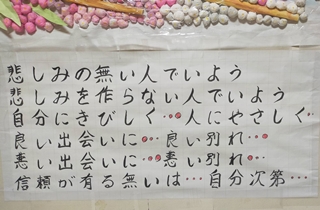 悲しみの無い人でいよう
悲しみを作らない人でいよう
自分にきびしく…人にやさしく…
良い出会いに…良い別れ…
悪い出会いに…悪い別れ…
信頼が有る無いは…自分次第…